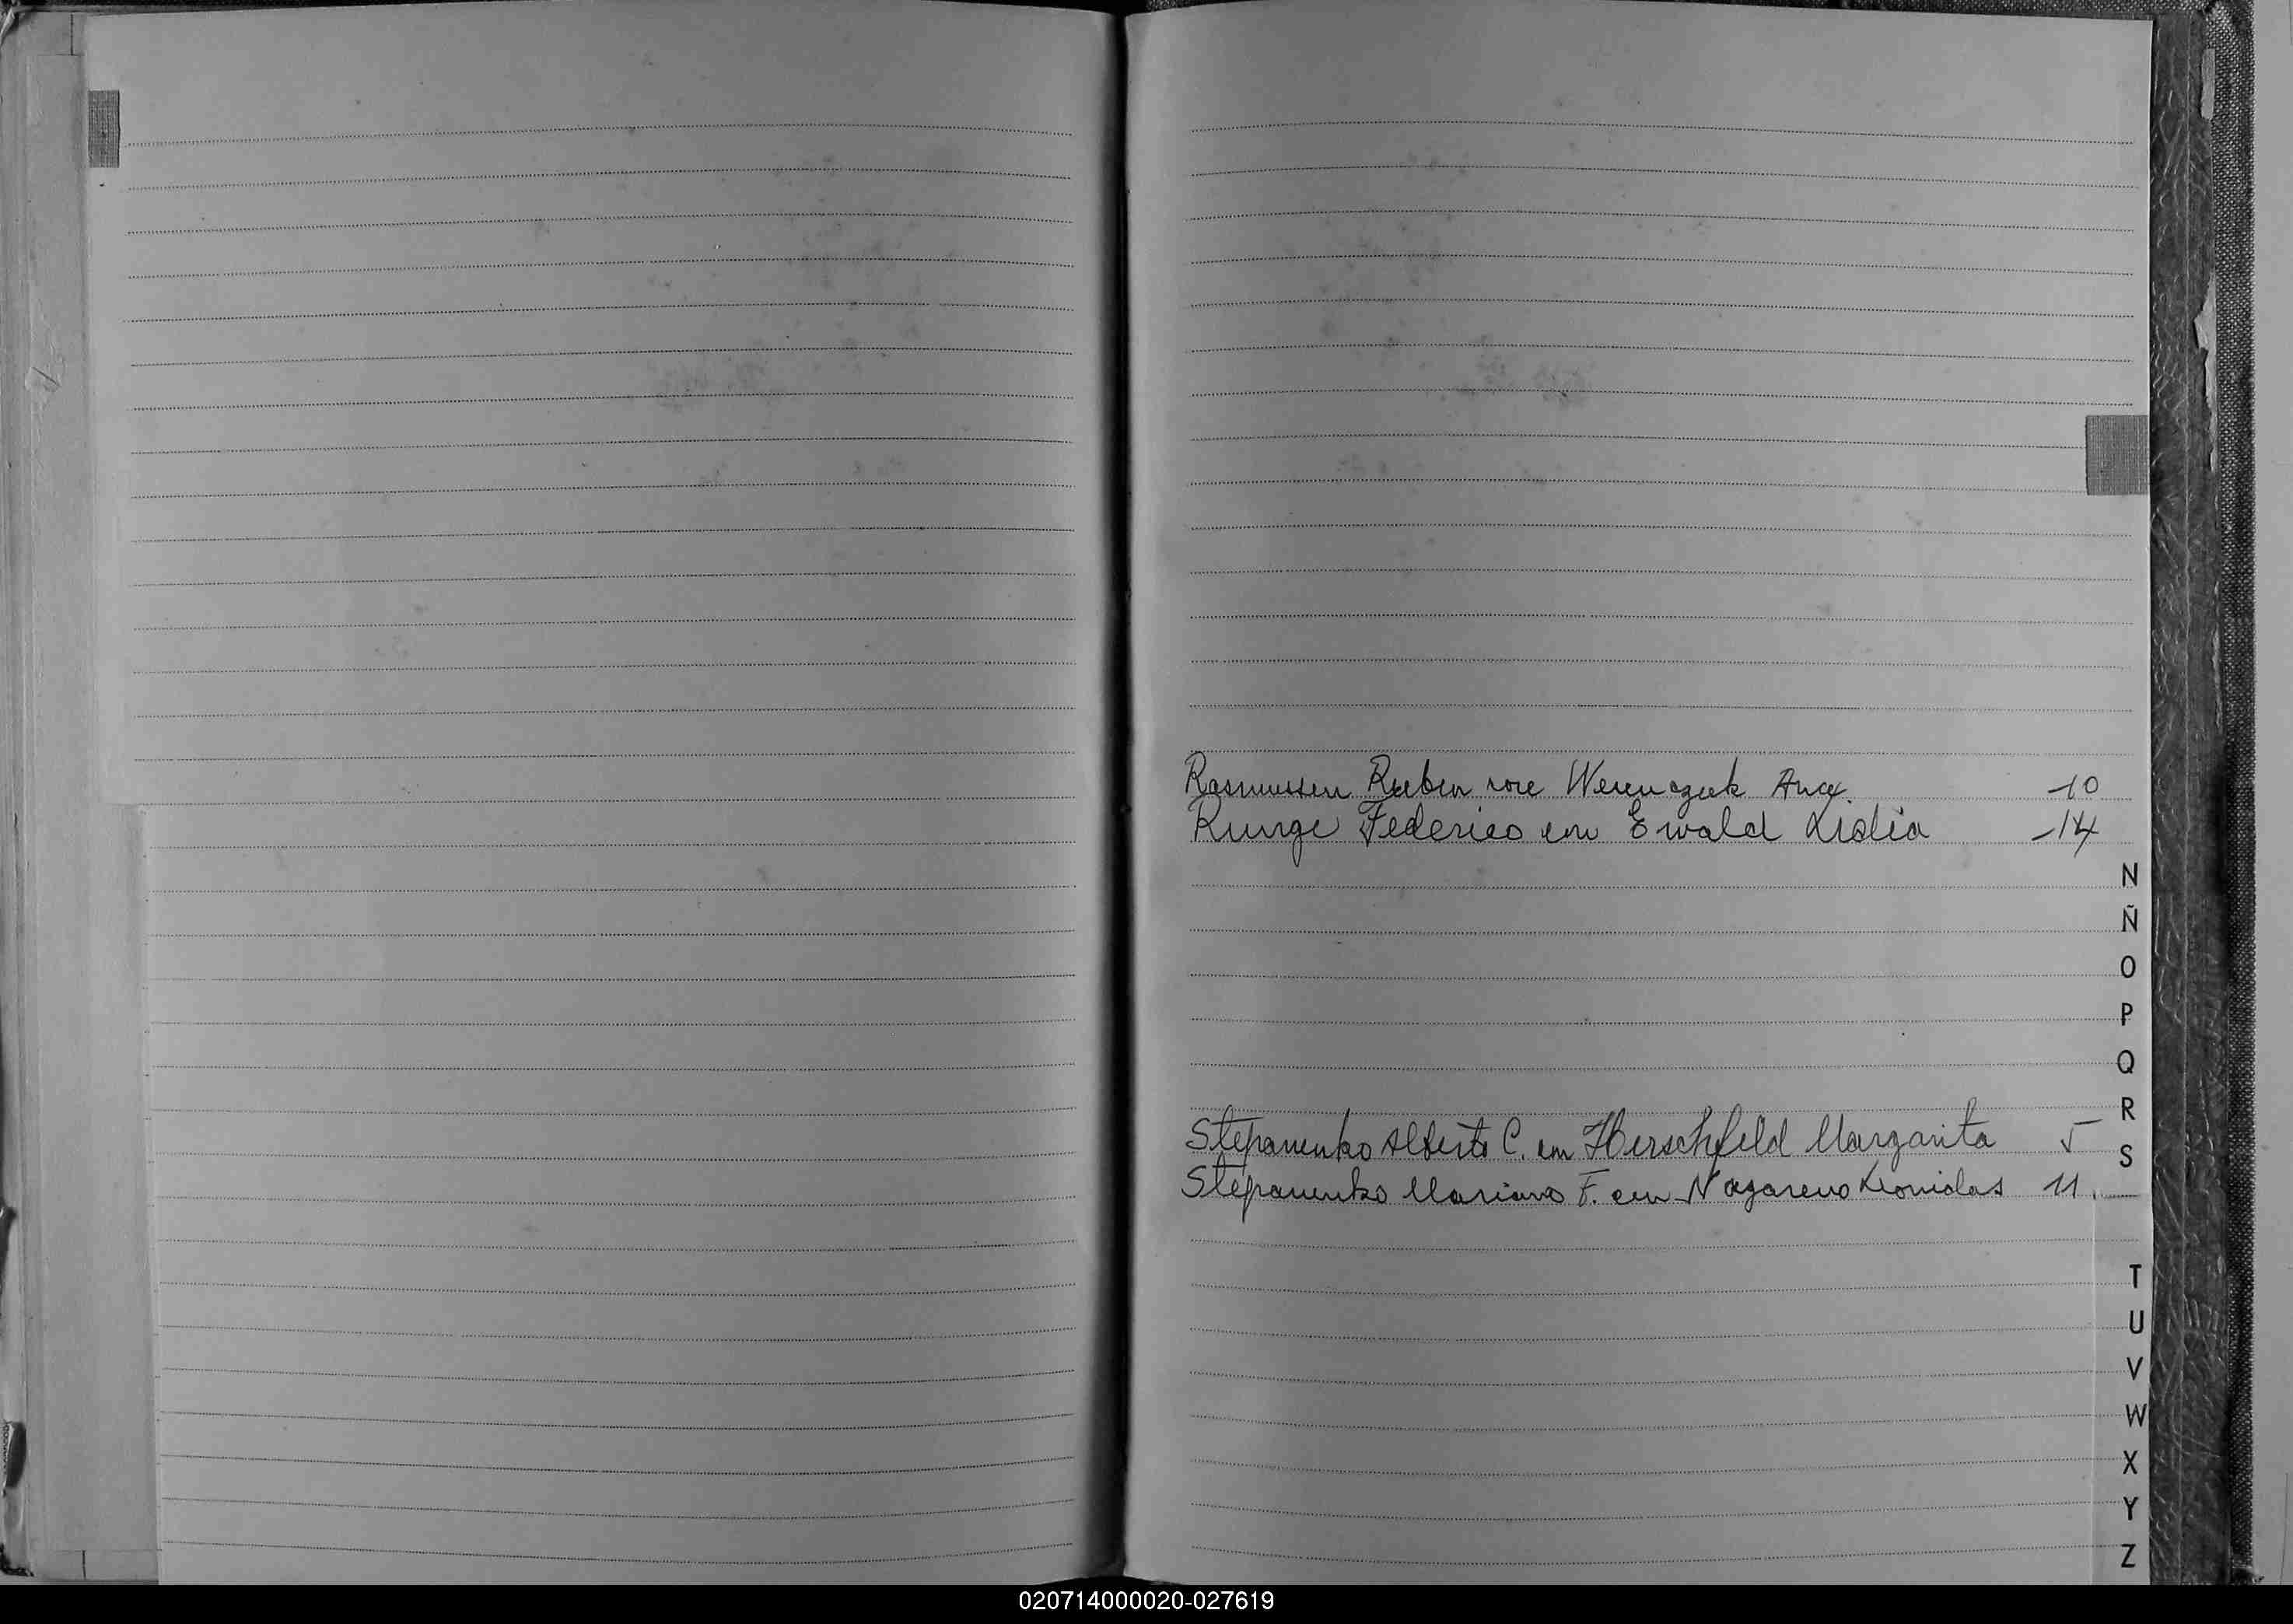 Rasmussen Ruben Werenczuk 10
Runge Federico con Ewald Lidia 14
N
Ñ
O
P
Q
R
Stepanenko Alberto C. con Herschfeld Margarita 5
S
Stepanenko Mariano F. con Nazareno Leonidas 11
T
U
V
W
X
Y
Z
020714000020-027619